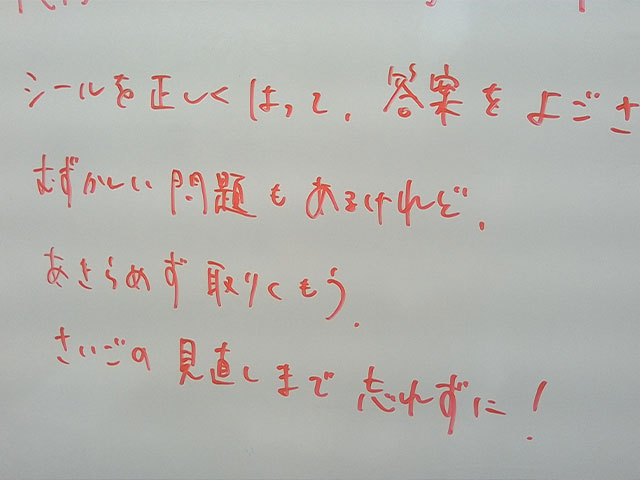 シールを正しくはって、答案をよごさ
むずかしい問題もあるけれど、
あきらめず取りくもう。
さいごの見直しまで忘れずに!